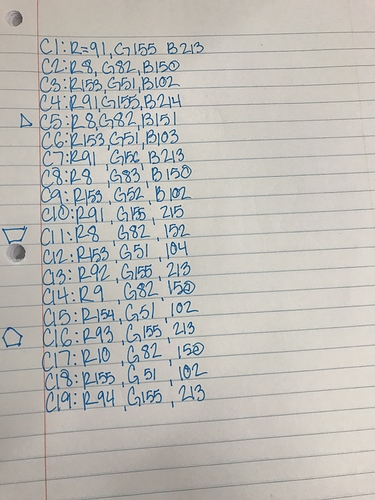 C1: R=91, G155 B213
C2: R8, G82, B150
C3: R153, G51, B102
C4: R91, G155, B214
C5: R8, G82, B151
C6: R153, G51, B103
C7: R91 G156, B213
C8: R8, G83, B150
C9: R153, G52, B102
C10: R91, G155, 215
C11: R8, G82, 152
C12: R153, G51, 104
C13: R92, G155, 213
C14: R9, G82, 150
C15: R154, G51, 102
C16: R93, G155, 213
C17: R10, G82, 150
C18: R155, G51, 102
C19: R94, G155, 213